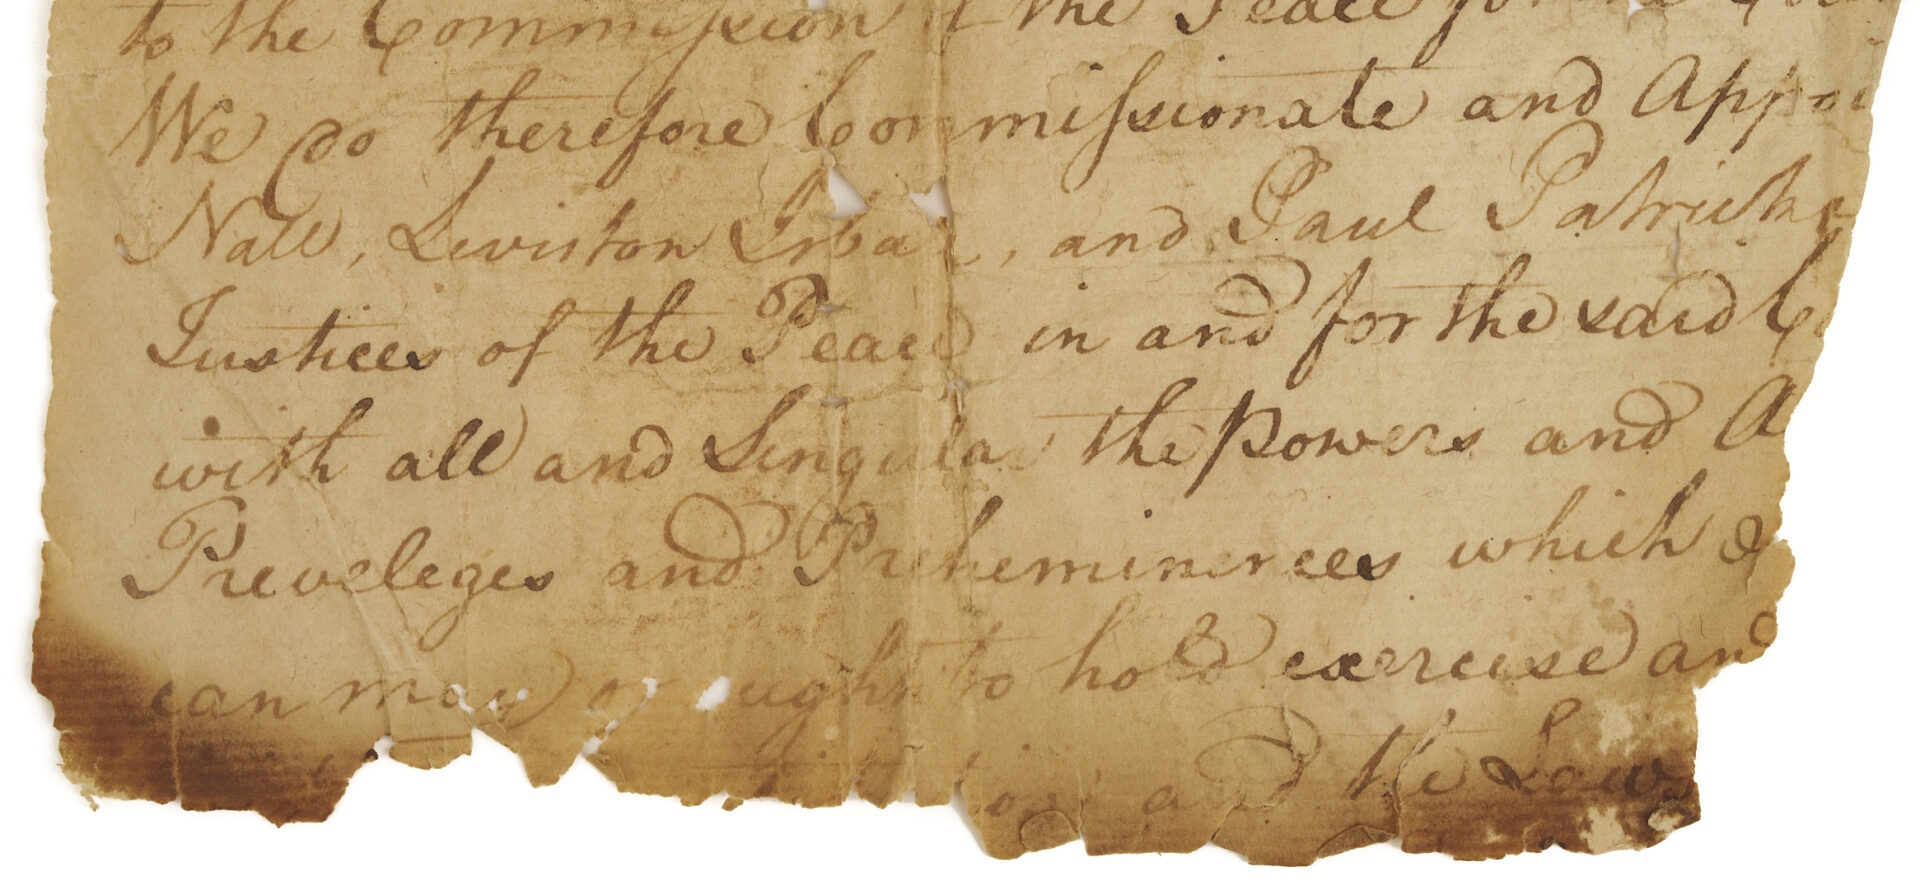 to the Commission of the Peace for the
We do therefore Commissionate and
Nall, Leviston and Paul
Justices of the Peace in and for the said
with all and Singular the powers and
Preveleges and Preheminences which
can may or ought to hold exercise and
and the Laws